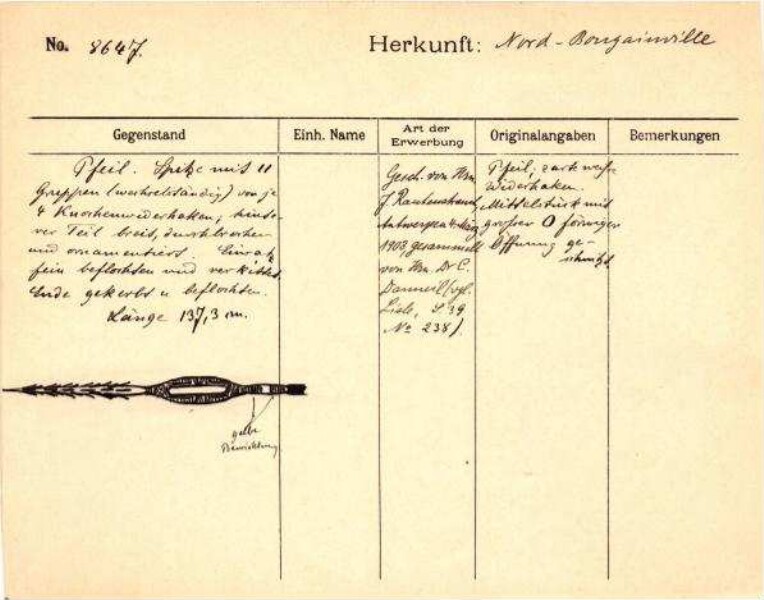 No. 8647.
Herkunft: Nord-Bougainville
Gegenstand
Einh. Name
Art der
Erwerbung
Originalangaben
Bemerkungen
Pfeil. Spitze mit 11
Gruppen (wechselständig) von je
4 Knochenwiderhaken; hinte-
rer Teil breit, durchbrochen
und ornamentiert. Einsatz
fein beflochten und verkittet.
Ende gekerbt u beflochten.
Länge 137,3 cm.
gelbe
Bewicklung
Gesch. von Hrn.
J. Rautenstrauch
Antwerpen
1903, gesammelt
von Hrn. Dr C.
Danneil (vgl.
Liste, S. 39
No 238).
Pfeil,
Widerhaken.
Mittelstück mit
grosser O förmiger
Öffnung ge-
schnitzt